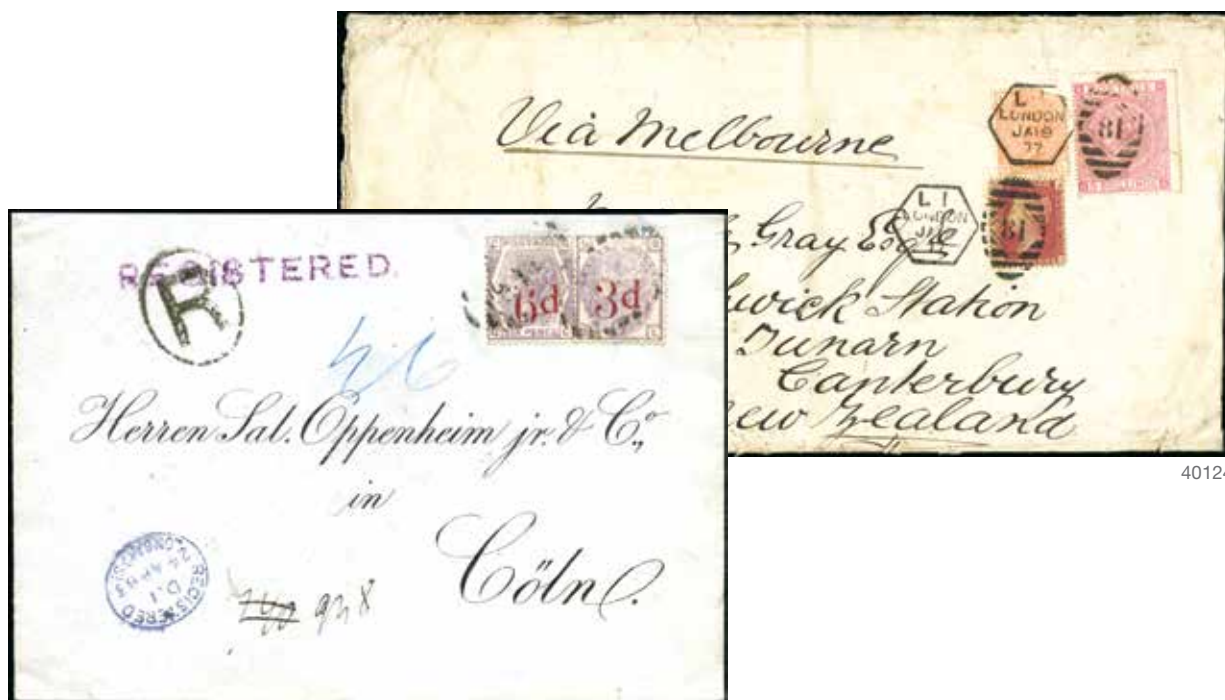 Via Melbourne
L 1
LONDON
JA 18
77
81
L 1
LONDON
JA
81
Gray Esqre
wick Station
Dunarn
Canterbury
New Zealand
40124
REGISTERED.
R
6d 3d
Herren Sal. Oppenheim jr. & Co.,
in
Cöln.
REGISTERED
D.1
AP 83
928